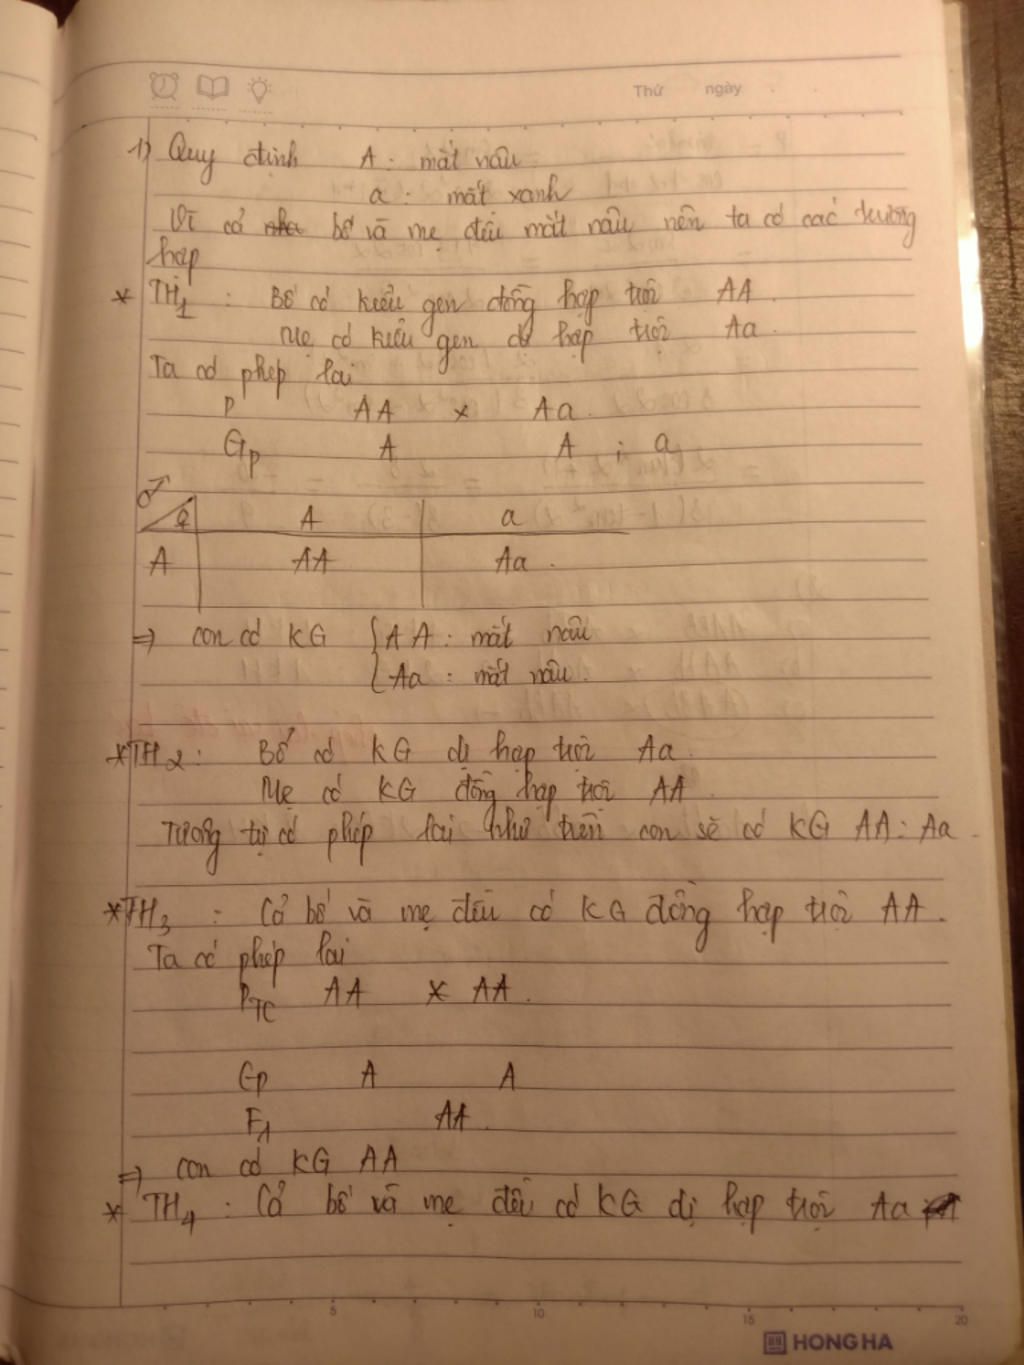 Thứ ngày
1) Quy định A : mắt nâu
a : mắt xanh
Vì cả bố và mẹ đều mắt nâu nên ta có các trường
hợp
* TH1 : Bố có kiểu gen đồng hợp trội AA.
Mẹ có kiểu gen dị hợp trội Aa.
Ta có phép lai
P AA x Aa.
Gp A A ; a
♂
♀ A a
A AA Aa.
=> con có KG { AA : mắt nâu
{ Aa : mắt nâu.
* TH2 : Bố có KG dị hợp trội Aa.
Mẹ có KG đồng hợp trội AA.
Tương tự có phép lai như trên con sẽ có KG AA : Aa.
* TH3 : Cả bố và mẹ đều có KG đồng hợp trội AA.
Ta có phép lai
PTC AA x AA.
Gp A A
F1 AA.
=> con có KG AA
* TH4 : Cả bố và mẹ đều có KG dị hợp trội Aa
5 10 15 20
HONG HA